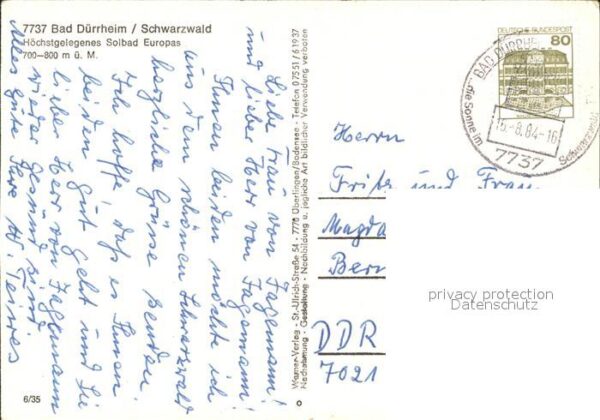 7737 Bad Dürrheim / Schwarzwald
Höchstgelegenes Solbad Europas
700–800 m ü. M.
Liebe Frau von Fagemann!
und lieber Herr von Fagemann!
Ihnen beiden möchte ich
aus dem schönen Schwarzwald
herzliche Grüsse senden
Ich hoffe, daß es Ihnen
beiden gut geht und Sie
lieber Herr von Fagemann
wieder gesund sind.
Alles gute Ihre W.
6/35
Werner-Verlag - St.-Ulrich-Straße 54 - 7770 Überlingen/Bodensee - Telefon 07551/61937
Nachahmung - Gestaltung - Nachbildung u. jegliche Art bildlicher Verwendung verboten
DEUTSCHE BUNDESPOST
80
BAD DÜRRHEIM
...die Sonne im
Schwarzwald
-8.84-16
7737
Herrn
Fritz und Frau
Magda
Bern
DDR
7021
privacy protection
Datenschutz